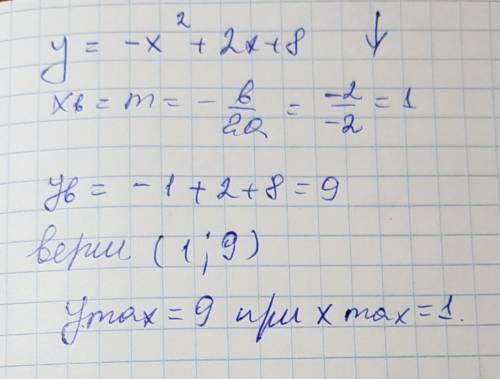 y = -x² + 2x + 8 ↓
xв = m = - в/2a = -2/-2 = 1
yв = -1 + 2 + 8 = 9
верш (1; 9)
y max = 9 при x max = 1.